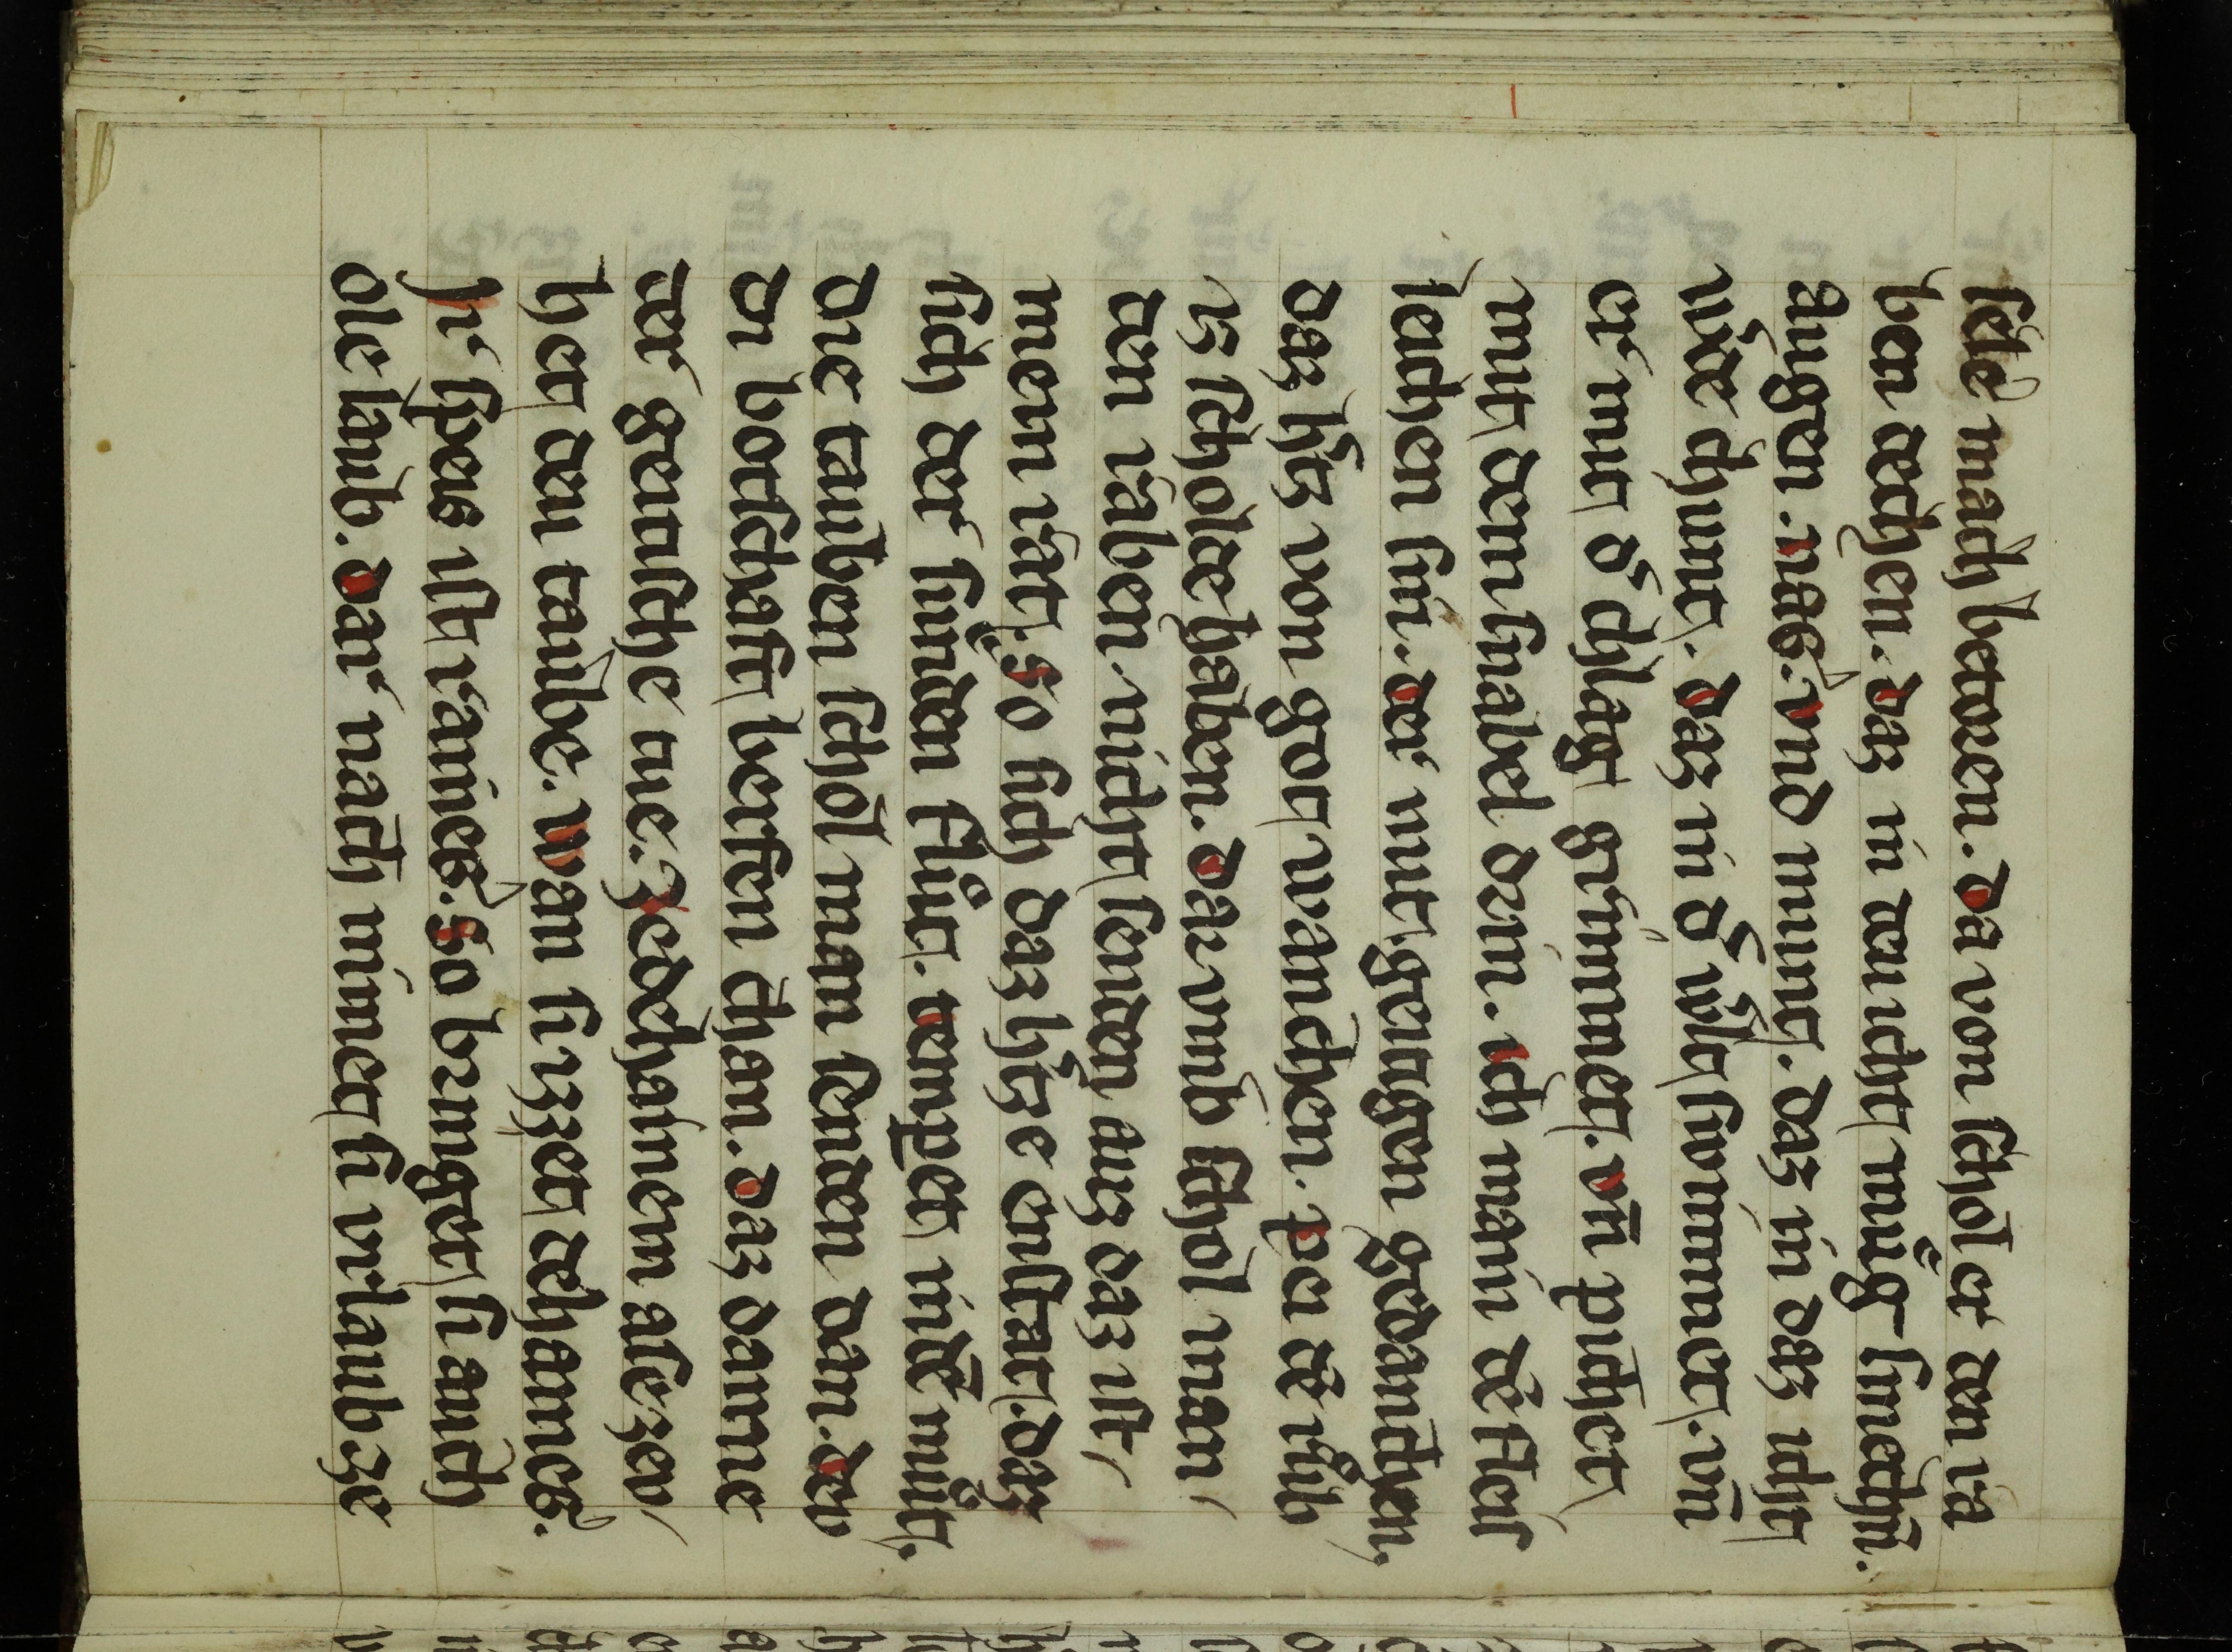 sele mach betoren. da von schol er den ra
ben dechen. daz in deu icht mug smechn̄.
augen. nas. vnd munt. daz in daz icht
wider chumt. daz in d' wͤlt swimmet. vn̄
er mit d' chlag grimmet. vn̄ pichet
mit dem snabel drin. ich main de fleis
leichen sin. der mit geitigen gedanchen.
daz hͤtz von got wanchen. pei de růb
is scholde haben. dar vmb schol man
den raben nicht senden auz daz ist
mein rat. so sich daz hͤtze enstat. daz
sich der sunden flůt. tempet nidē můt.
die tauben schol man senden dan. deu
di botschaft berfen chan. daz danne
der genische nie. zedehainem asezeu
het deu taube. wan si izzet dehaines.
Ir speis ist raines. so bringet si auch
ole laub. dar nach nimet si vrlaub ze